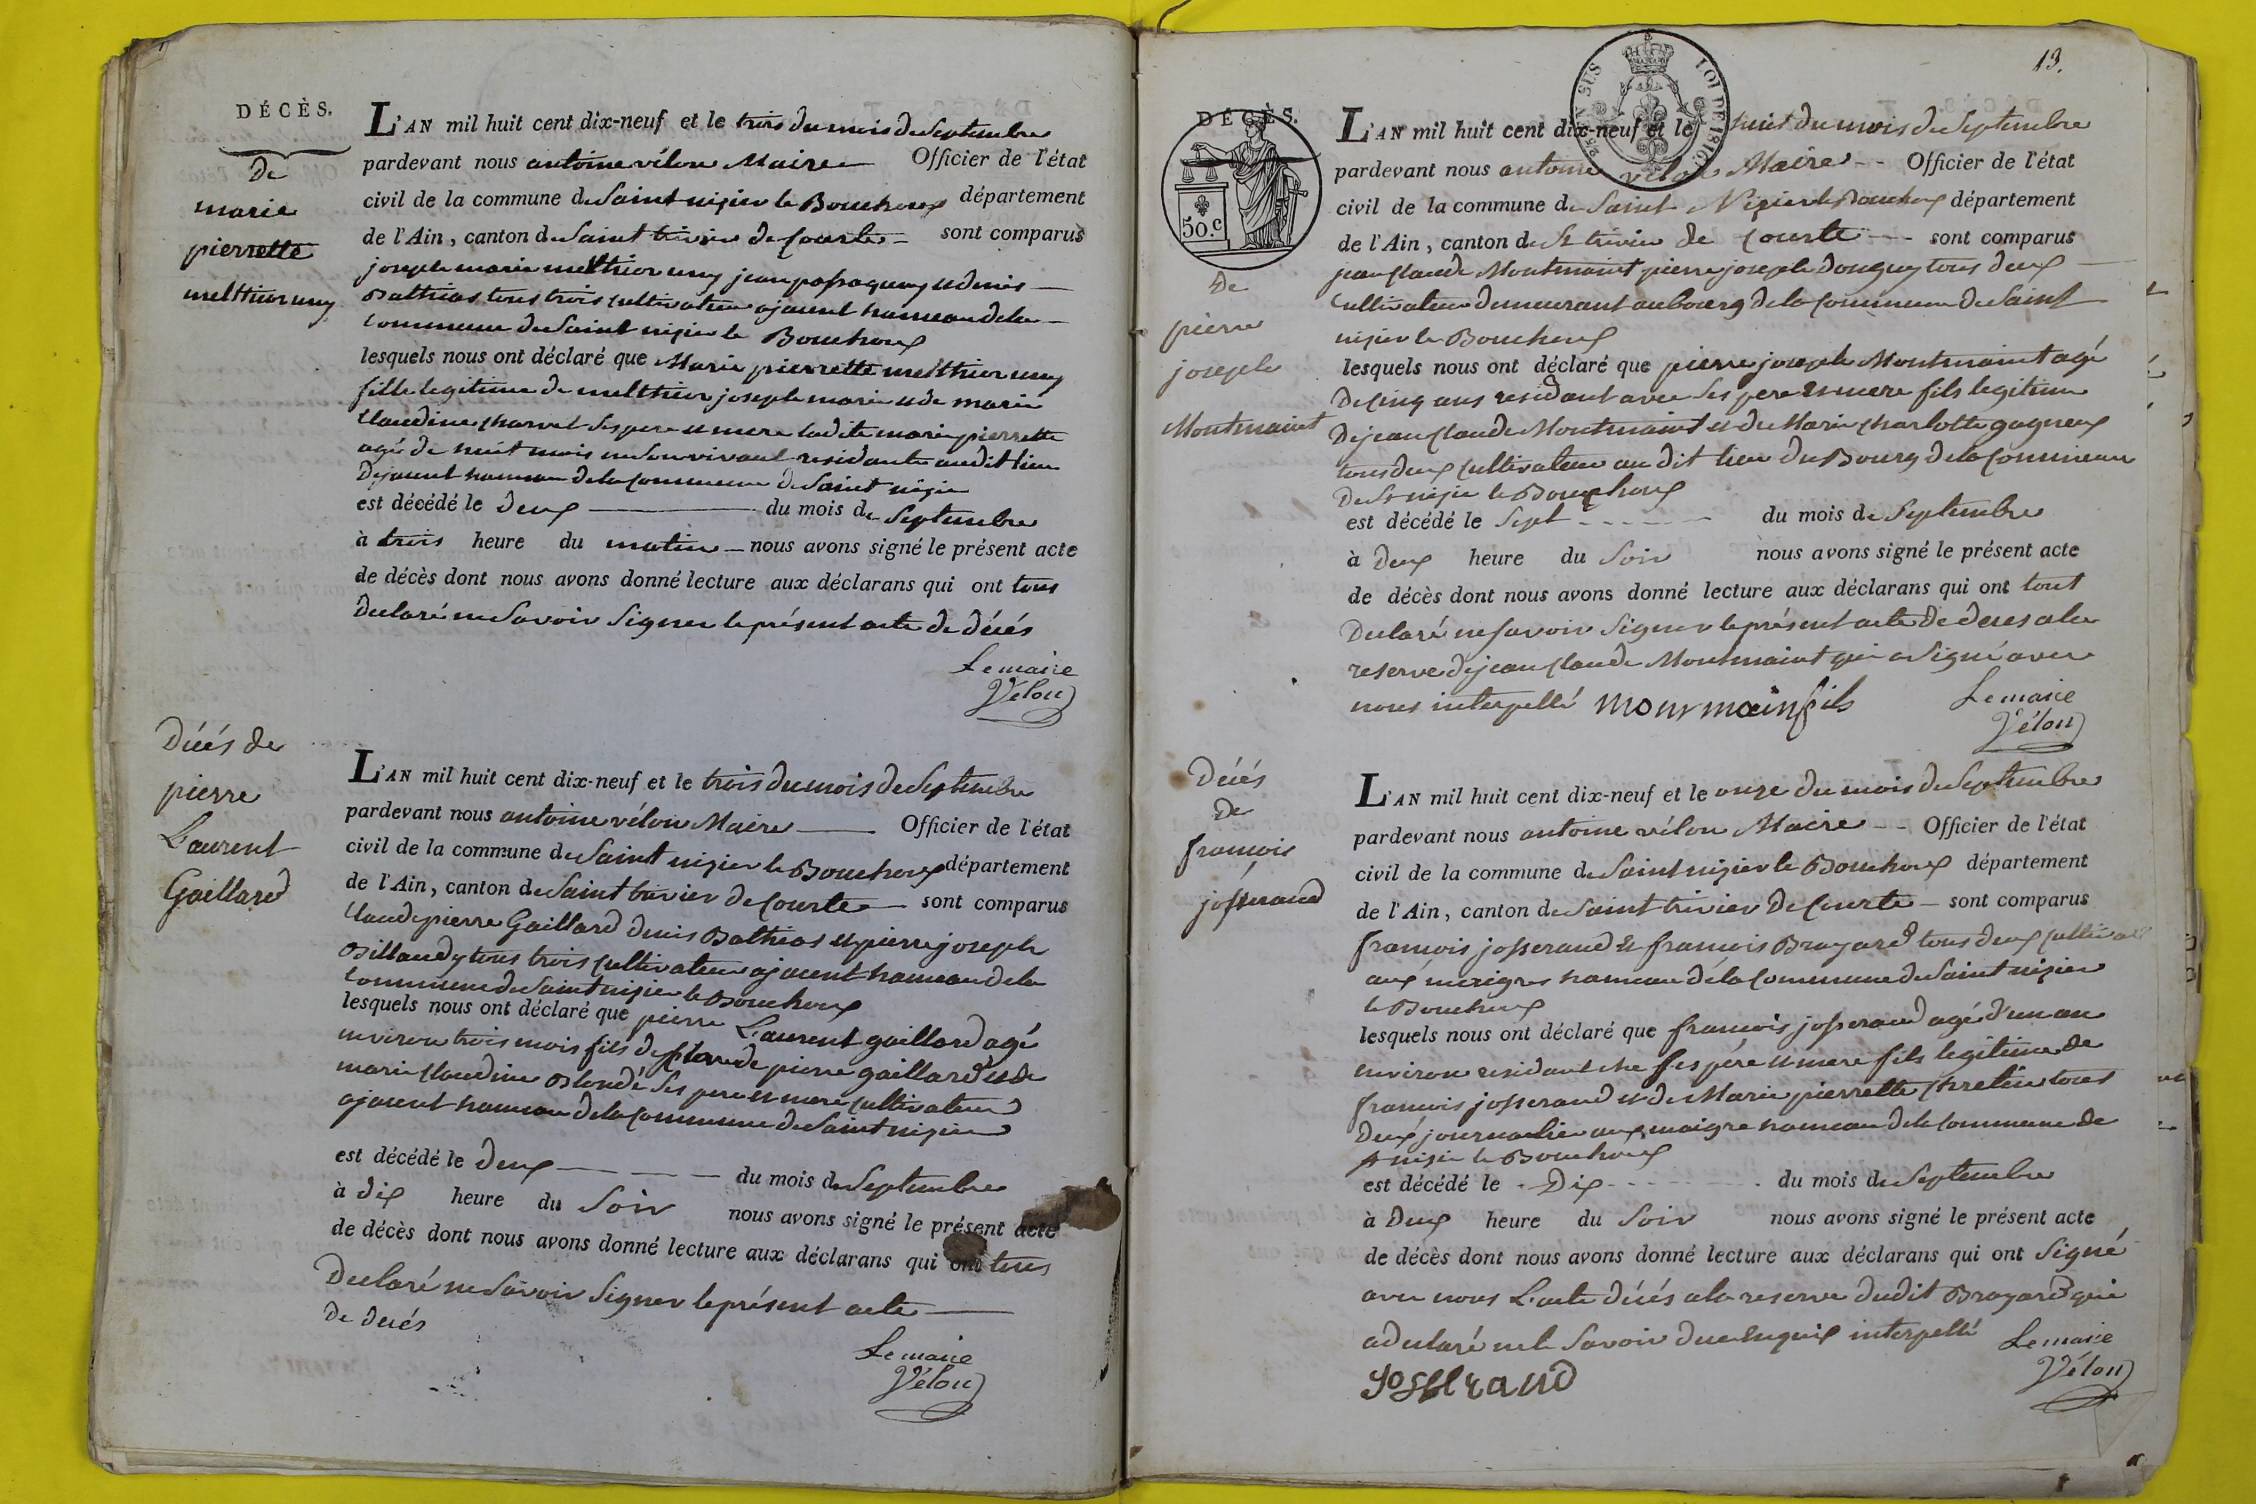 DÉCÈS.
De
marie
pierrette
melthior uny
L'AN mil huit cent dix-neuf et le trois du mois de Septembre
pardevant nous antoine vélon Maire Officier de l'état
civil de la commune de Saint nizier le Bouchoux département
de l'Ain, canton de Saint trivier de Courte sont comparus
joseph marie melthior uny jean et denis
Bathias tous trois cultivateur ajacent hameau de la
commune de Saint nizier le Bouchoux
lesquels nous ont déclaré que Marie pierrette melthior uny
fille legitime de melthior joseph marie et de marie
Claudine Charvet Ses pere et mere ladite marie pierrette
agé de huit mois en Son vivant residante audit lieu
Dejacent hameau de la Commune de Saint nizier
est décédé le Deux du mois de Septembre
à trois heure du matin nous avons signé le présent acte
de décès dont nous avons donné lecture aux déclarans qui ont tous
Declaré ne Savoir Signer le présent acte de décés
Le maire
Vélon
Décés de
pierre
Laurent
Gaillard
L'AN mil huit cent dix-neuf et le trois du mois de Septembre
pardevant nous antoine vélon Maire Officier de l'état
civil de la commune de Saint nizier le Bouchoux département
de l'Ain, canton de Saint trivier de Courte sont comparus
Claude pierre Gaillard denis Bathias et pierre joseph
Billaudy tous trois cultivateur ajacent hameau de la
Commune de Saint nizier le Bouchoux
lesquels nous ont déclaré que pierre Laurent gaillard agé
environ trois mois fils de Claude pierre gaillard et de
marie Claudine Blondé Ses pere et mere cultivateur
ajacent hameau de la Commune de Saint nizier
est décédé le deux du mois de Septembre
à dix heure du Soir nous avons signé le présent acte
de décès dont nous avons donné lecture aux déclarans qui ont tous
Declaré ne Savoir Signer le présent acte
De decés
Le maire
Vélon
13.
25 EN SUS
LOI DE 1816.
DÉCÈS.
50.c
De
pierre
joseph
Montmaint
L'AN mil huit cent dix-neuf et le huit du mois de Septembre
pardevant nous antoine vélon Maire Officier de l'état
civil de la commune de Saint Nizier le Bouchoux département
de l'Ain, canton de St trivier de Courte sont comparus
jean Claude Montmaint pierre joseph Donguy tous deux
Cultivateur demeurant au bourg de la Commune de Saint
nizier le Bouchoux
lesquels nous ont déclaré que pierre joseph Montmaint agé
De Cinq ans residant avec Ses pere et mere fils legitime
De jean Claude Montmaint et de Marie Charlotte gagneux
tous deux cultivateur au dit lieu du Bourg de la Commune
De St nizier le Bouchoux
est décédé le Sept du mois de Septembre
à Deux heure du Soir nous avons signé le présent acte
de décès dont nous avons donné lecture aux déclarans qui ont tout
Declaré ne Savoir Signer le présent acte de deces a la
reserve de jean Claude Montmaint qui a Signé avec
nous interpellé monrmain fils
Le maire
Vélon
Décés
De
françois
josserand
L'AN mil huit cent dix-neuf et le onze du mois de Septembre
pardevant nous antoine vélon Maire Officier de l'état
civil de la commune de Saint nizier le Bouchoux département
de l'Ain, canton de Saint trivier De Courte sont comparus
françois josserand et françois Brayard tous deux
aux meigres hameau de la Commune de Saint nizier
le Bouchoux
lesquels nous ont déclaré que françois josserand agé d'un an
environ residant che Ses pére et mere fils legitime de
françois josserand et de Marie pierrette Chretin tous
Deux journalier aux maigre hameau de la Commune de
St nizier le Bouchoux
est décédé le Dix du mois de Septembre
à Deux heure du Soir nous avons signé le présent acte
de décès dont nous avons donné lecture aux déclarans qui ont Signé
avec nous L'acte décés a la reserve dudit Brayard qui
a declaré ne le Savoir de ce enquis interpellé
Josserand
Le maire
Vélon